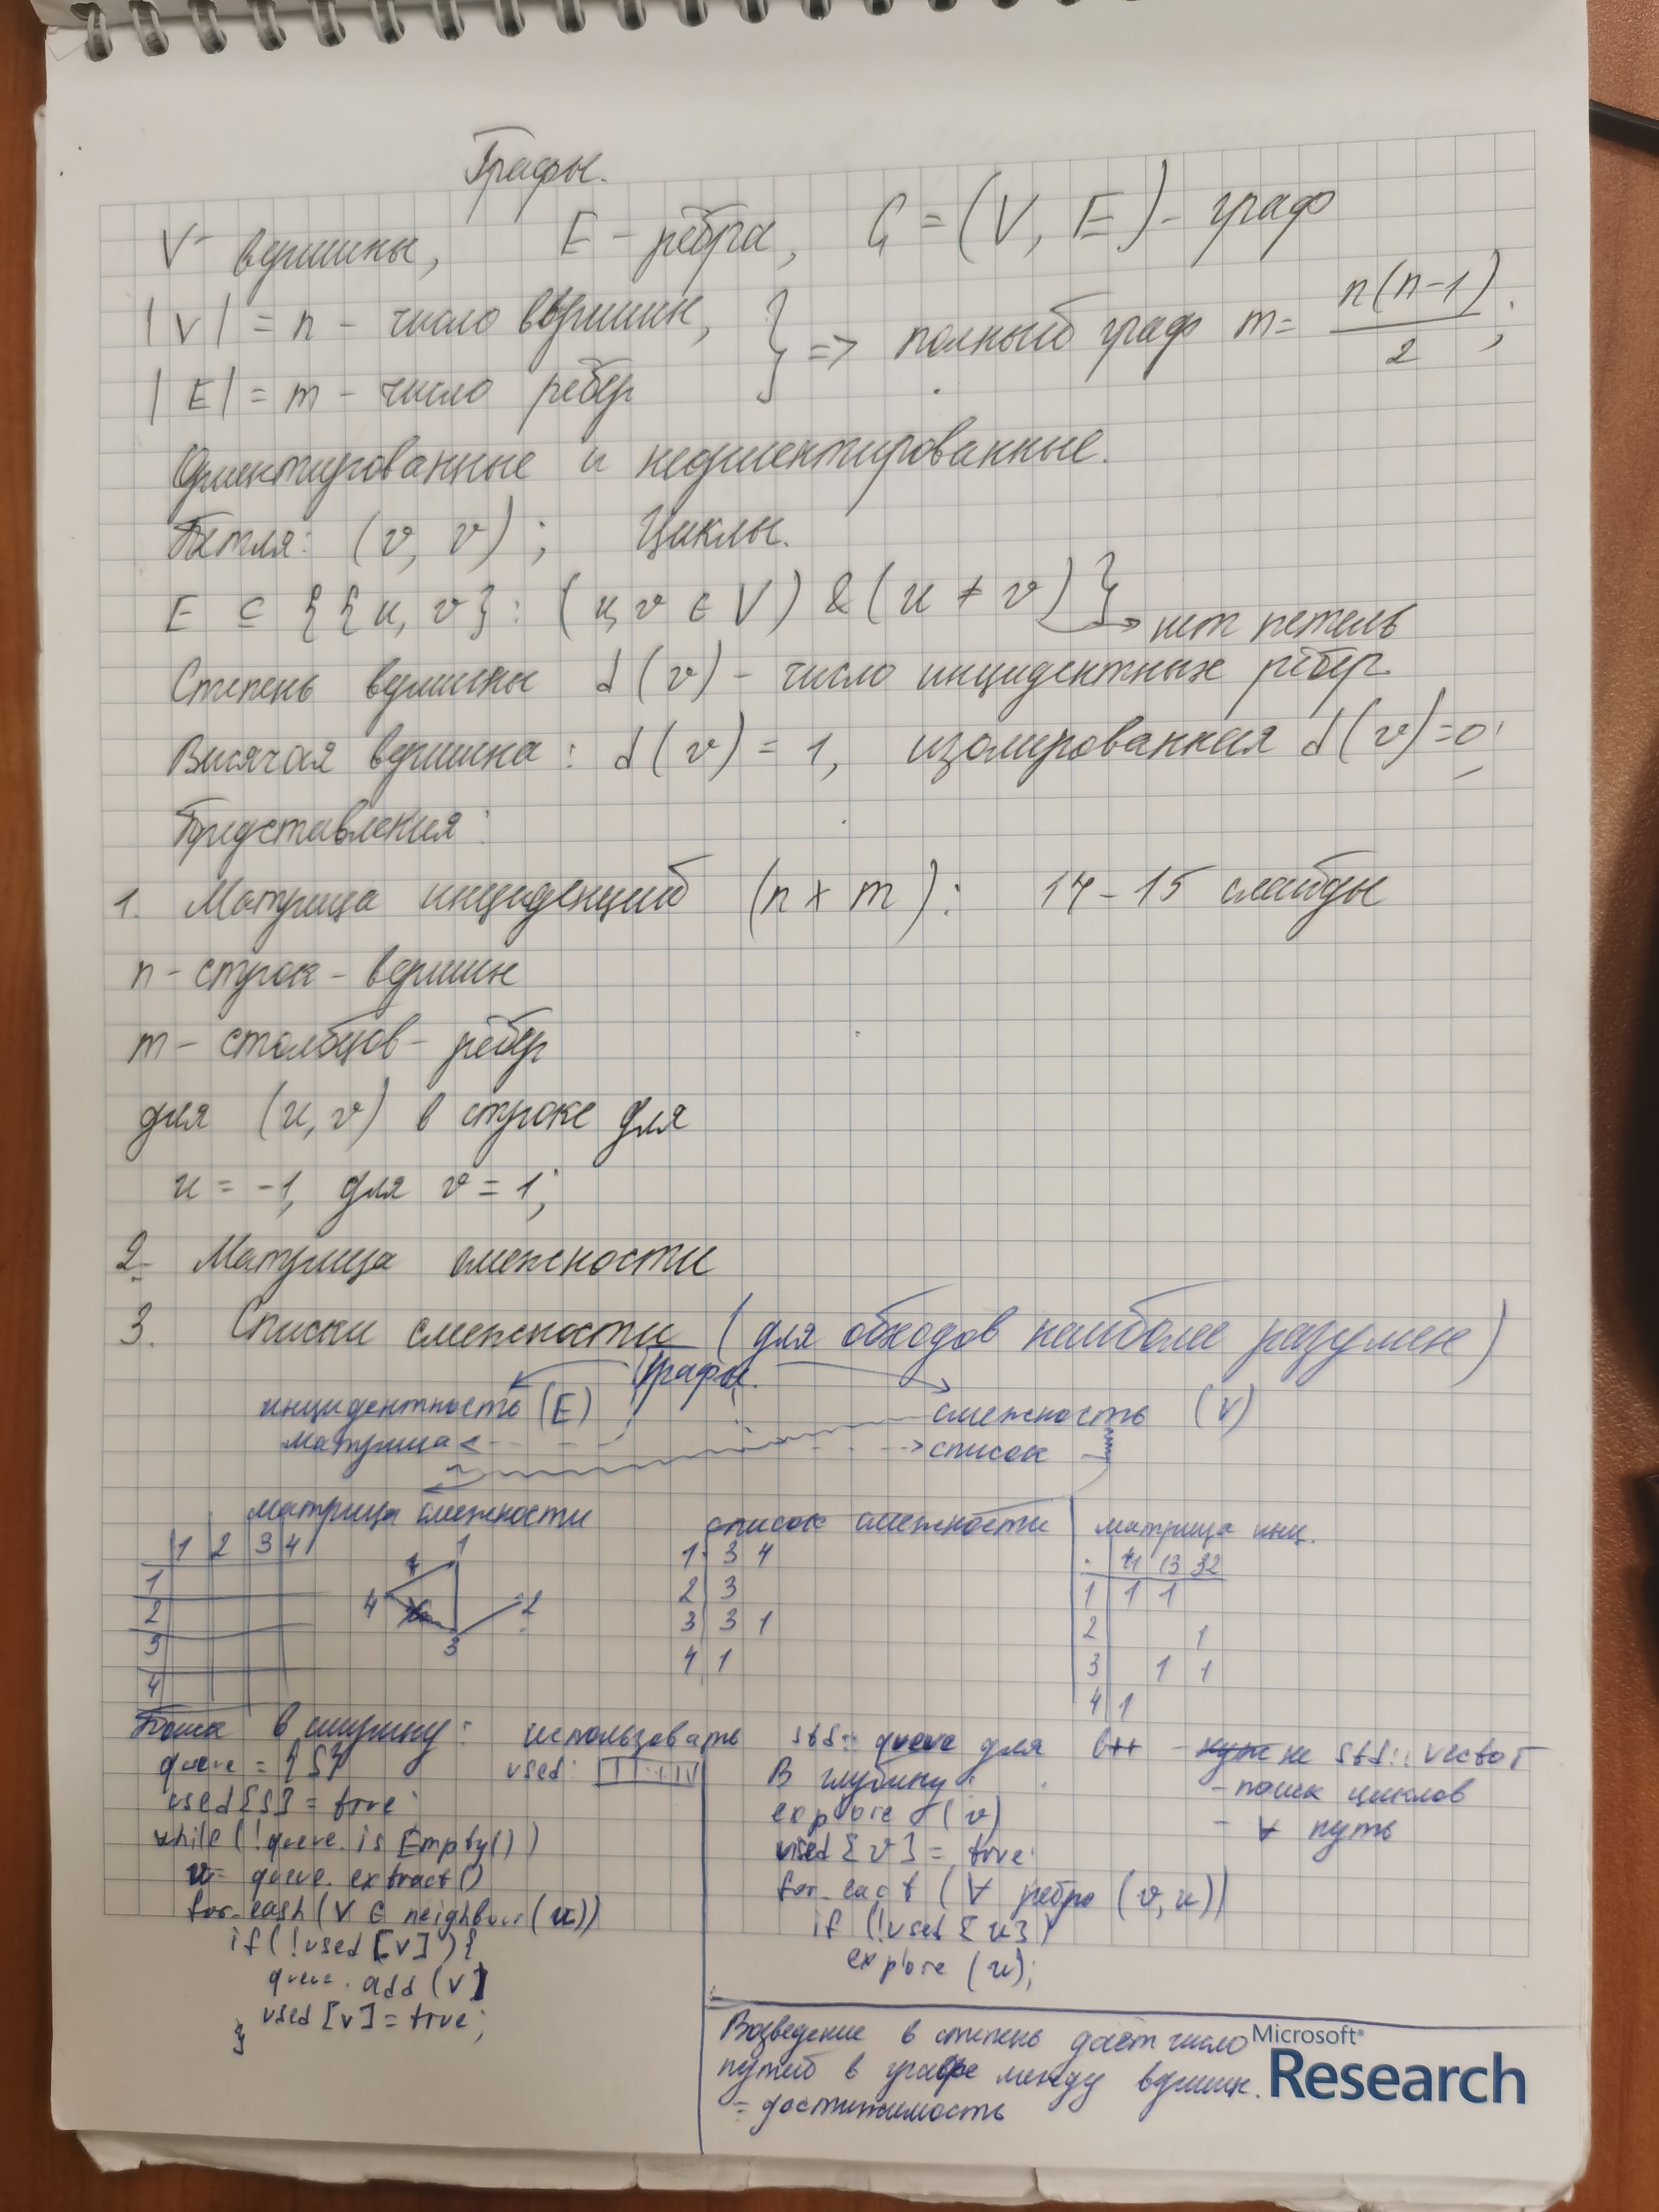 Графы.
V - вершины, E - рёбра, G = (V, E) - граф
|V| = n - число вершин,
|E| = m - число рёбер
} => полный граф m = n(n-1)/2;
Ориентированные и неориентированные.
Петля: (v, v); Циклы.
E ⊆ {{u, v} : (u, v ∈ V) & (u ≠ v)} → нет петель
Степень вершины d(v) - число инцидентных рёбер
Висячая вершина: d(v) = 1, изолированная d(v)=0;
Представления:
1. Матрица инциденций (n x m): 14-15 слайды
n - строк - вершин
m - столбцов - рёбер
для (u, v) в строке для
u = -1, для v = 1;
2. Матрица смежности
3. Списки смежности (для обходов наиболее разумен)
Графы.
инцидентность (E) смежность (V)
матрица список
матрица смежности
1 2 3 4
1
2
3
4
1
4 2
3
список смежности
1 3 4
2 3
3 3 1
4 1
матрица инц.
41 13 32
1 1 1
2 1
3 1 1
4 1
Поиск в ширину: использовать std::queue для C++ - не std::vector
queue = {S}
used:
used[S] = true
while (!queue.isEmpty())
u = queue.extract()
for each (V ∈ neighbour(u))
if (!used[v]) {
queue.add(v)
used[v] = true;
}
В глубину:
explore (v)
used[v] = true
for each (∀ ребро (v, u))
if (!used[u])
explore (u);
- поиск циклов
- ∀ путь
Возведение в степень даёт число
путей в графе между вершин.
= достижимость
Microsoft®
Research